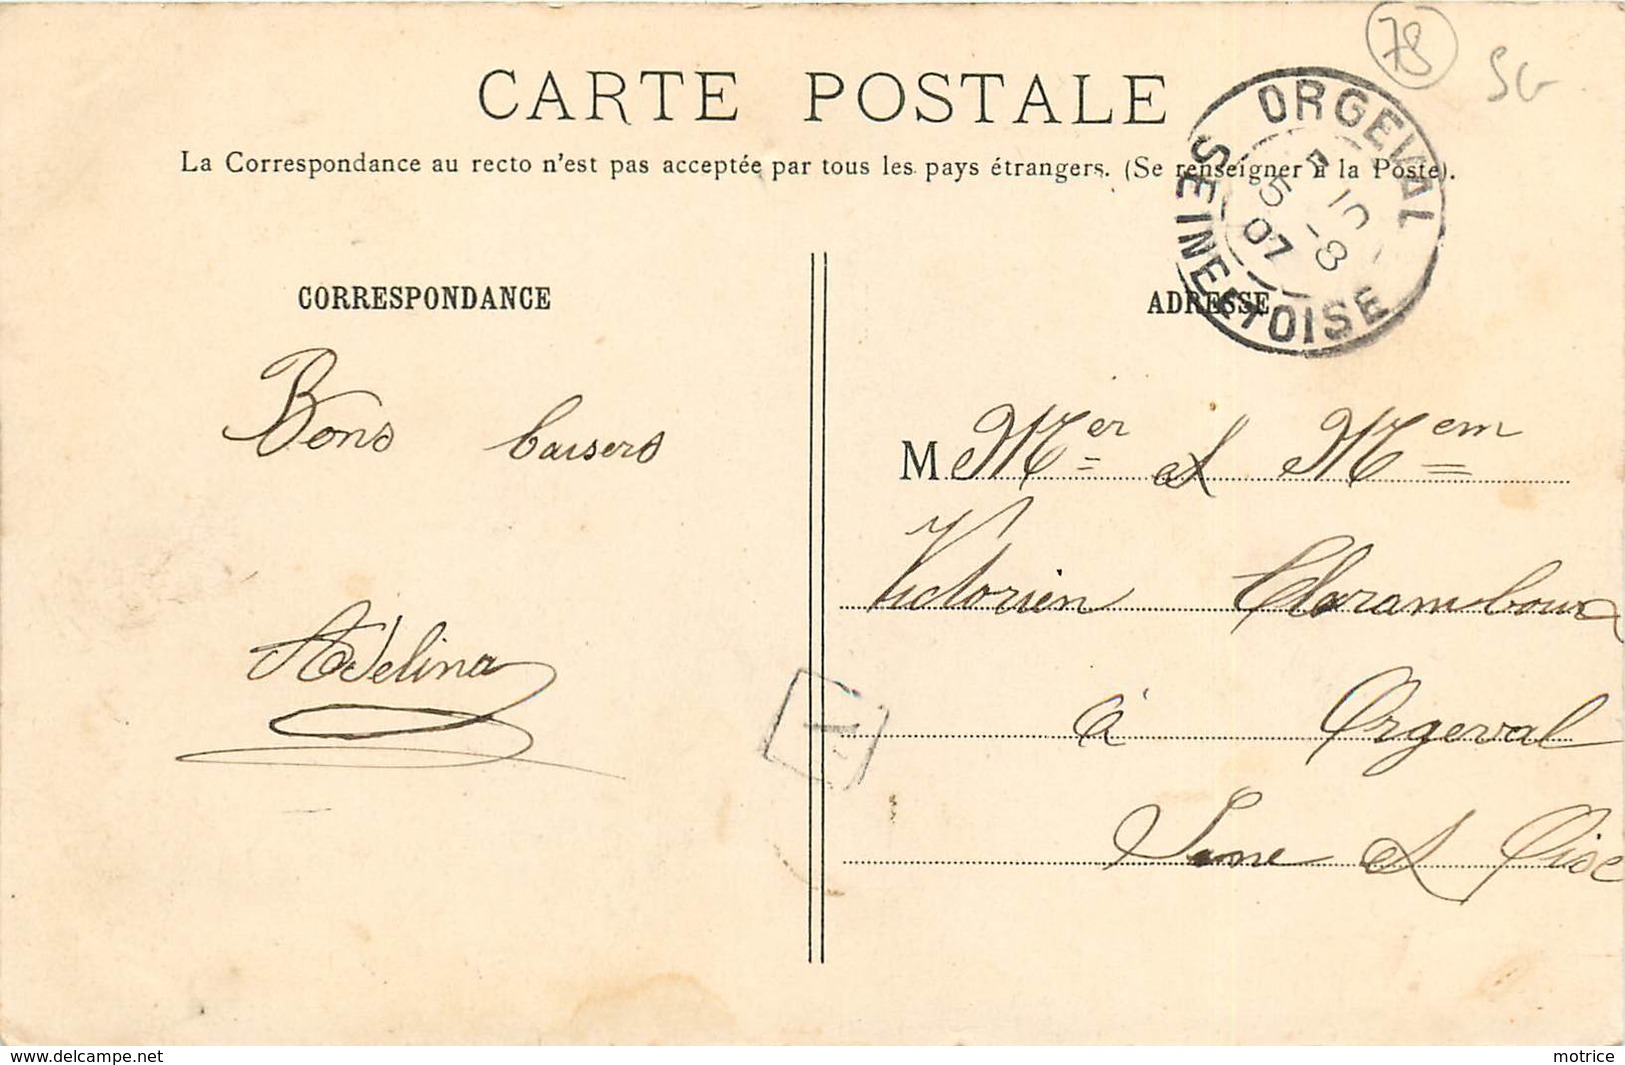 78
SG
CARTE POSTALE
La Correspondance au recto n'est pas acceptée par tous les pays étrangers. (Se renseigner à la Poste).
ORGEVAL
SEINE ET OISE
10
5 -8
07
CORRESPONDANCE
ADRESSE
Bons baisers
Adelina
M Mer et Mem
Victorien Claramboux
à Orgeval
Seine et Oise
www.delcampe.net
motrice